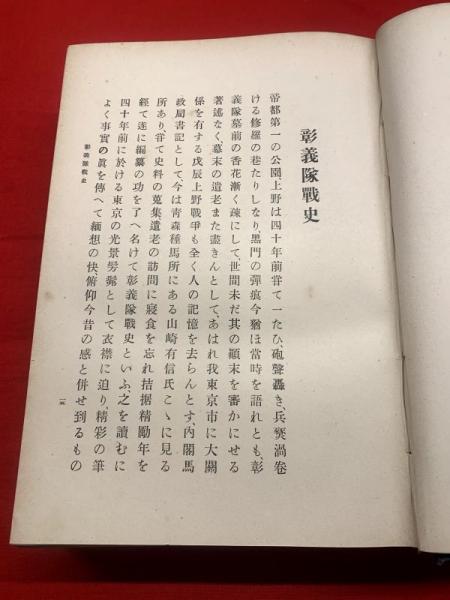 彰義隊戰史
帝都第一の公園上野は四十年前甞て一たひ、砲聲轟き、兵燹渦卷
ける修羅の巷たりしなり、黒門の彈痕今猶ほ當時を語れとも、彰
義隊墓前の香花漸く疎にして、世間未だ其の顚末を審かにせる
著述なく、幕末の遺老また盡きんとして、あはれ我東京市に大關
係を有する戊辰上野戰爭も全く人の記憶を去らんとす、內閣馬
政局書記として今は靑森種馬所にある山崎有信氏こゝに見る
所あり、甞て史料の蒐集、遺老の訪問に寢食を忘れ拮据精勵年を
經て遂に編纂の功を了へ名けて彰義隊戰史といふ、之を讀むに
四十年前に於ける東京の光景髣髴として衣襟に迫り、精彩の筆
よく事實の眞を傳へて緬想の快、俯仰今昔の感と併せ到るもの
彰義隊戰史